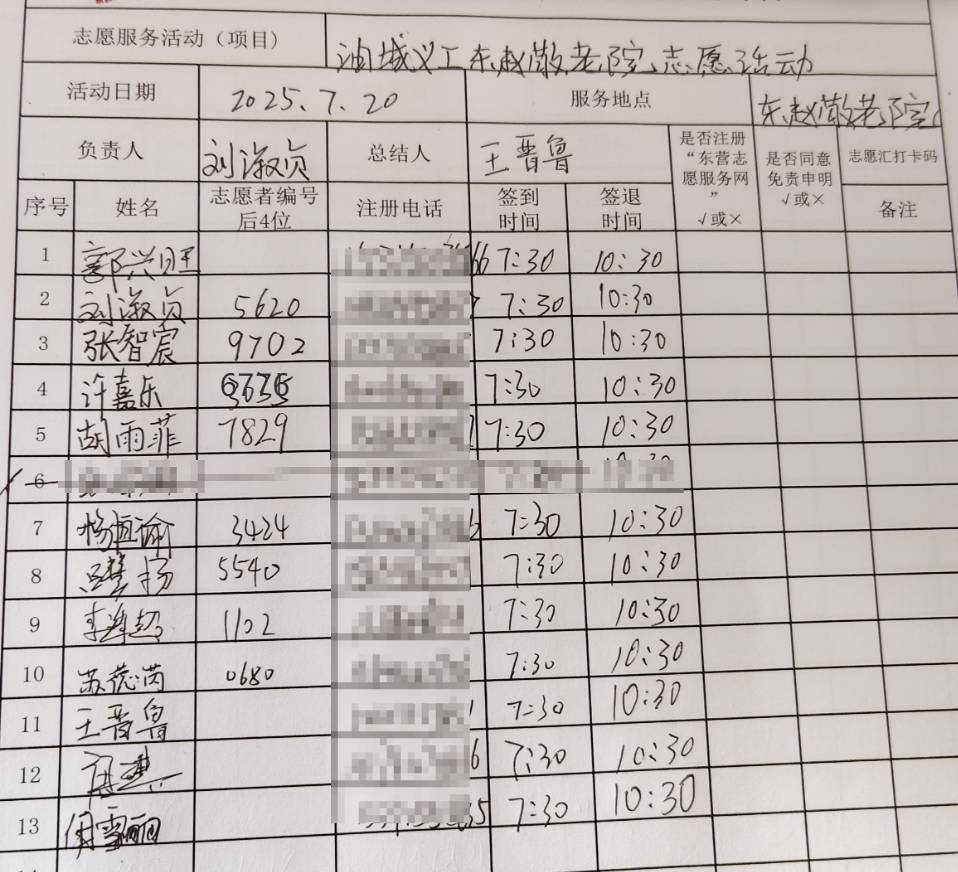 志愿服务活动（项目） 油城义工东赵敬老院志愿活动
活动日期 2025.7.20 服务地点 东赵敬老院
负责人 刘淑贞 总结人 王晋鲁 是否注册“东营志愿服务网”√或× 是否同意免责申明√或× 志愿汇打卡码
序号 姓名 志愿者编号后4位 注册电话 签到时间 签退时间 备注
1 郭兴旺 66 7:30 10:30
2 刘淑贞 5620 7:30 10:30
3 张智宸 9702 7:30 10:30
4 许嘉乐 7:30 10:30
5 胡雨菲 7829 7:30 10:30
6
7 杨恒谕 3424 7:30 10:30
8 5540 7:30 10:30
9 1102 7:30 10:30
10 0680 7:30 10:30
11 王晋鲁 7:30 10:30
12 6 7:30 10:30
13 35 7:30 10:30